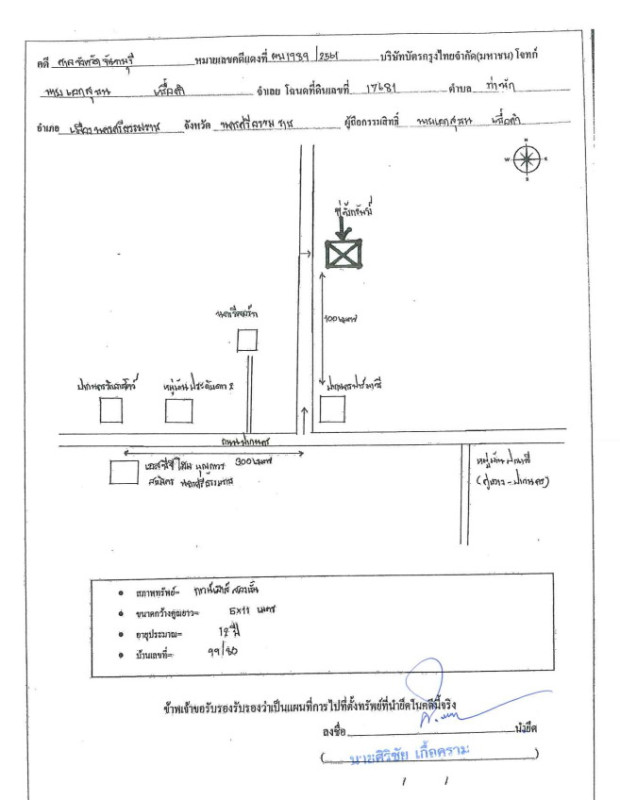 คดี ศาลจังหวัดจันทบุรี หมายเลขคดีแดงที่ ผบ1989 /2561 บริษัทบัตรกรุงไทยจำกัด(มหาชน) โจทก์
จำเลย โฉนดที่ดินเลขที่ 17681 ตำบล ท่างัก
อำเภอ เมืองนครศรีธรรมราช จังหวัด นครศรีธรรมราช ผู้ถือกรรมสิทธิ์
N
W E
S
ที่ตั้งทรัพย์
100 เมตร
นครรีสอร์ท
หมู่บ้านประดับดาว 2
ถนนปากนคร
300 เมตร
เอสซีจี โฮม บุญถาวร
นครศรีธรรมราช
หมู่บ้าน
• สภาพทรัพย์= ทาวน์เฮ้าส์ สองชั้น
• ขนาดกว้างคูณยาว= 5x11 เมตร
• อายุประมาณ= 12 ปี
• บ้านเลขที่= 99/80
ข้าพเจ้าขอรับรองรับรองว่าเป็นแผนที่การไปที่ตั้งทรัพย์ที่นำยึดในคดีนี้จริง
ลงชื่อ นำยึด
( นายศิริชัย เกื้อคราม )
/ /